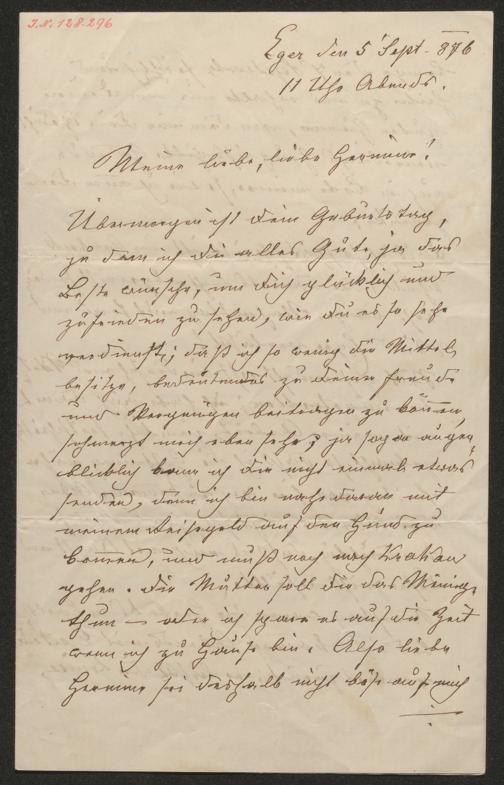 I.N. 128.296
Eger den 5 Sept. 876
11 Uhr Abends.
Meine liebe, liebe Hermine!
Übermorgen ist dein Geburtstag,
zu dem ich dir alles Gute, ja das
Beste wünsche, um dich glücklich und
zufrieden zu sehen, wie du es so sehr
verdienst; daß ich so wenig die Mittel
besitze, bedeutendes zu deiner Freude
und Vergnügen beitragen zu können,
schmerzt mich eben sehr; ja sogar augen
blicklich kann ich dir nicht einmal etwas
senden, denn ich bin nahe daran mit
meinem Reisegeld auf den Hund zu
kommen, und muß noch nach Krakau
gehen. Die Mutter soll dir das Meinige
thun – oder ich spare es auf die Zeit
wenn ich zu Hause bin. Also liebe
Hermine sei deshalb nicht böse auf mich